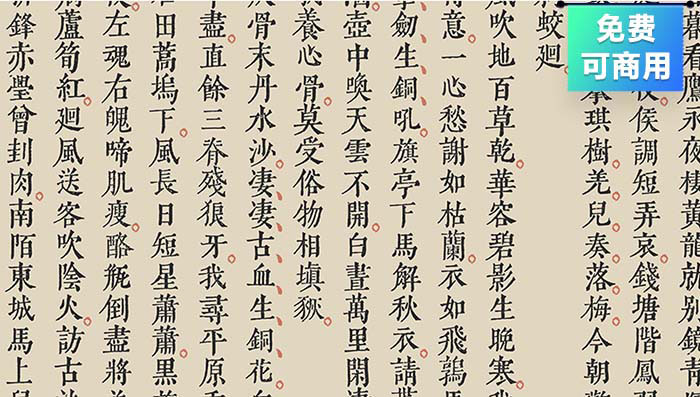 免费
可商用
看鷹永夜棲黃龍就別鏡靑
侯調短弄哀。錢塘階鳳
琪樹。羌兒奏落梅。今朝驚
蛟廻。
風吹地百草乾。華容碧影生晚寒。我
意。一心愁謝如枯蘭。衣如飛鶉馬
擊劒生銅吼。旗亭下馬解秋衣。請
酒。壺中喚天雲不開。白晝萬里閑
我養心骨。莫受俗物相塡豗。
骨末丹水沙。凄凄古血生銅花。白
中盡。直餘三脊殘狼牙。我尋平原
田蒿塢下。風長日短星蕭蕭。黑
左魂右魄啼肌瘦。酪瓶倒盡將
蘆筍紅。廻風送客吹陰火。訪古
折鋒赤璺曾刲肉。南陌東城馬上兒